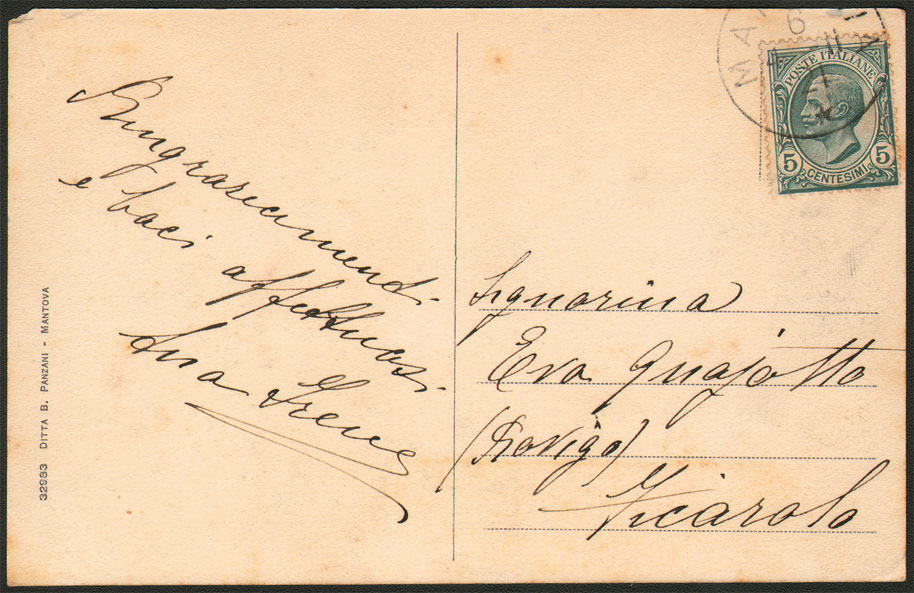 Ringraziamenti
e baci affettuosi
tua Irene
32933 DITTA B. PANZANI - MANTOVA
POSTE ITALIANE
5 CENTESIMI 5
Signorina
Eva Quajotto
(Rovigo)
Ficarolo